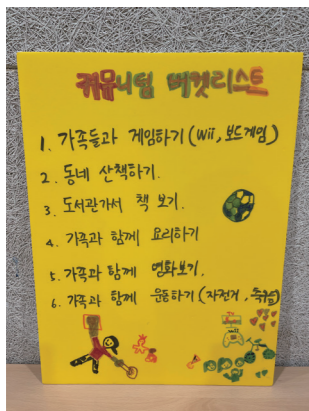 커뮤니덤 버킷리스트
1. 가족들과 게임하기 (wii, 보드게임)
2. 동네 산책하기.
3. 도서관가서 책 보기.
4. 가족과 함께 요리하기
5. 가족과 함께 영화보기.
6. 가족과 함께 운동하기 (자전거, 축구)
wii